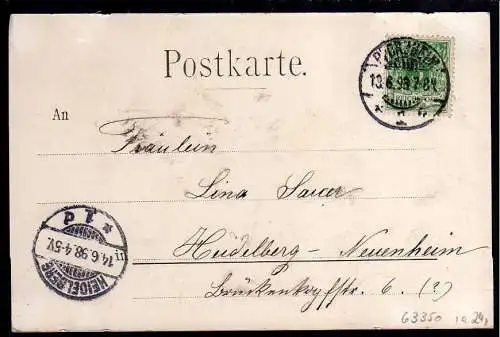 Postkarte.
PFORZHEIM
13.6.98.7-8N.
An
Fräulein
Lina Sauer
Heidelberg - Neuenheim
Brückenkopfstr. 6. (?)
* 1 d
14.6.98.4-5V.
HEIDELBERG
63350